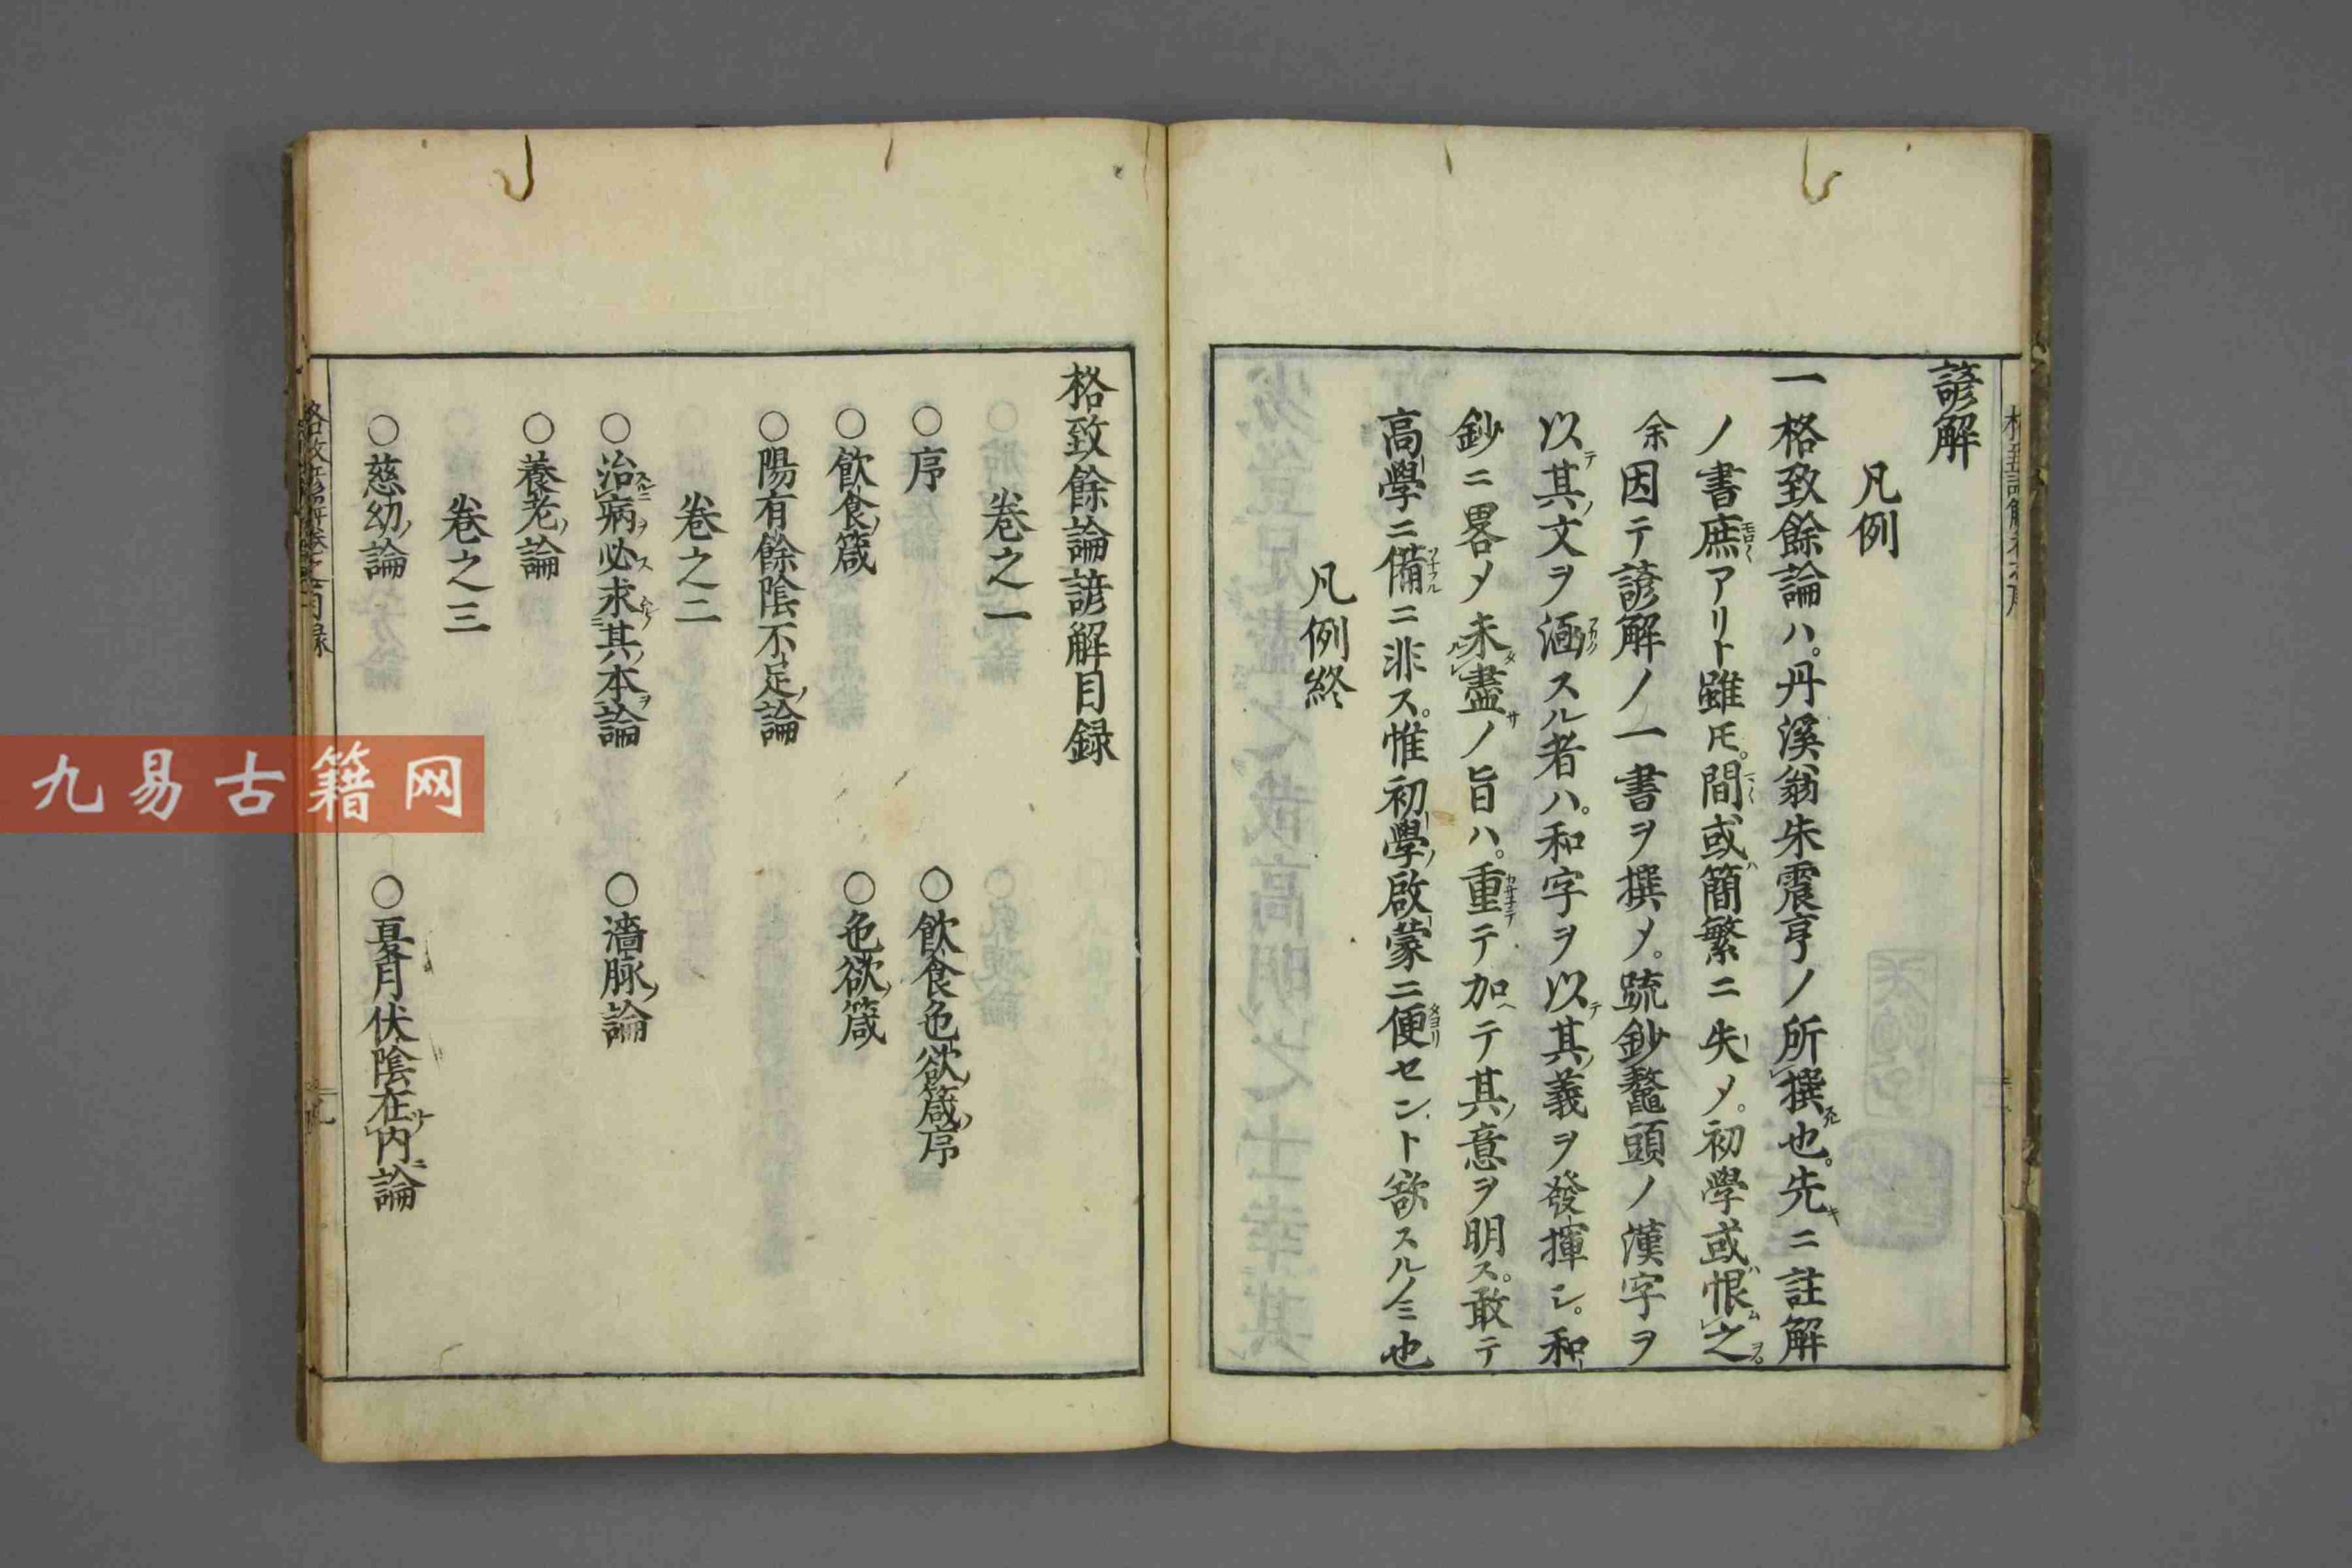 諺解
凡例
一格致餘論ハ。丹溪翁朱震亨ノ所撰也。先ニ註解
ノ書庶アリト雖モ。間或簡繁ニ失メ。初學或恨之
余因テ諺解ノ一書ヲ撰メ。䟽鈔鼇頭ノ漢字ヲ
以其文ヲ涵スル者ハ。和字ヲ以其義ヲ發揮シ。和
鈔ニ畧メ未盡ノ旨ハ。重テ加テ其意ヲ明ス。敢テ
高學ニ備ニ非ス。惟初學啟蒙ニ便セント欲スルノミ也
凡例終
格致餘論諺解目録
卷之一
○序
○飲食色欲箴序
○飲食箴
○色欲箴
○陽有餘陰不足論
卷之二
○治病必求其本論
○濇脉論
○養老論
卷之三
○慈幼論
○夏月伏陰在内論
九易古籍网